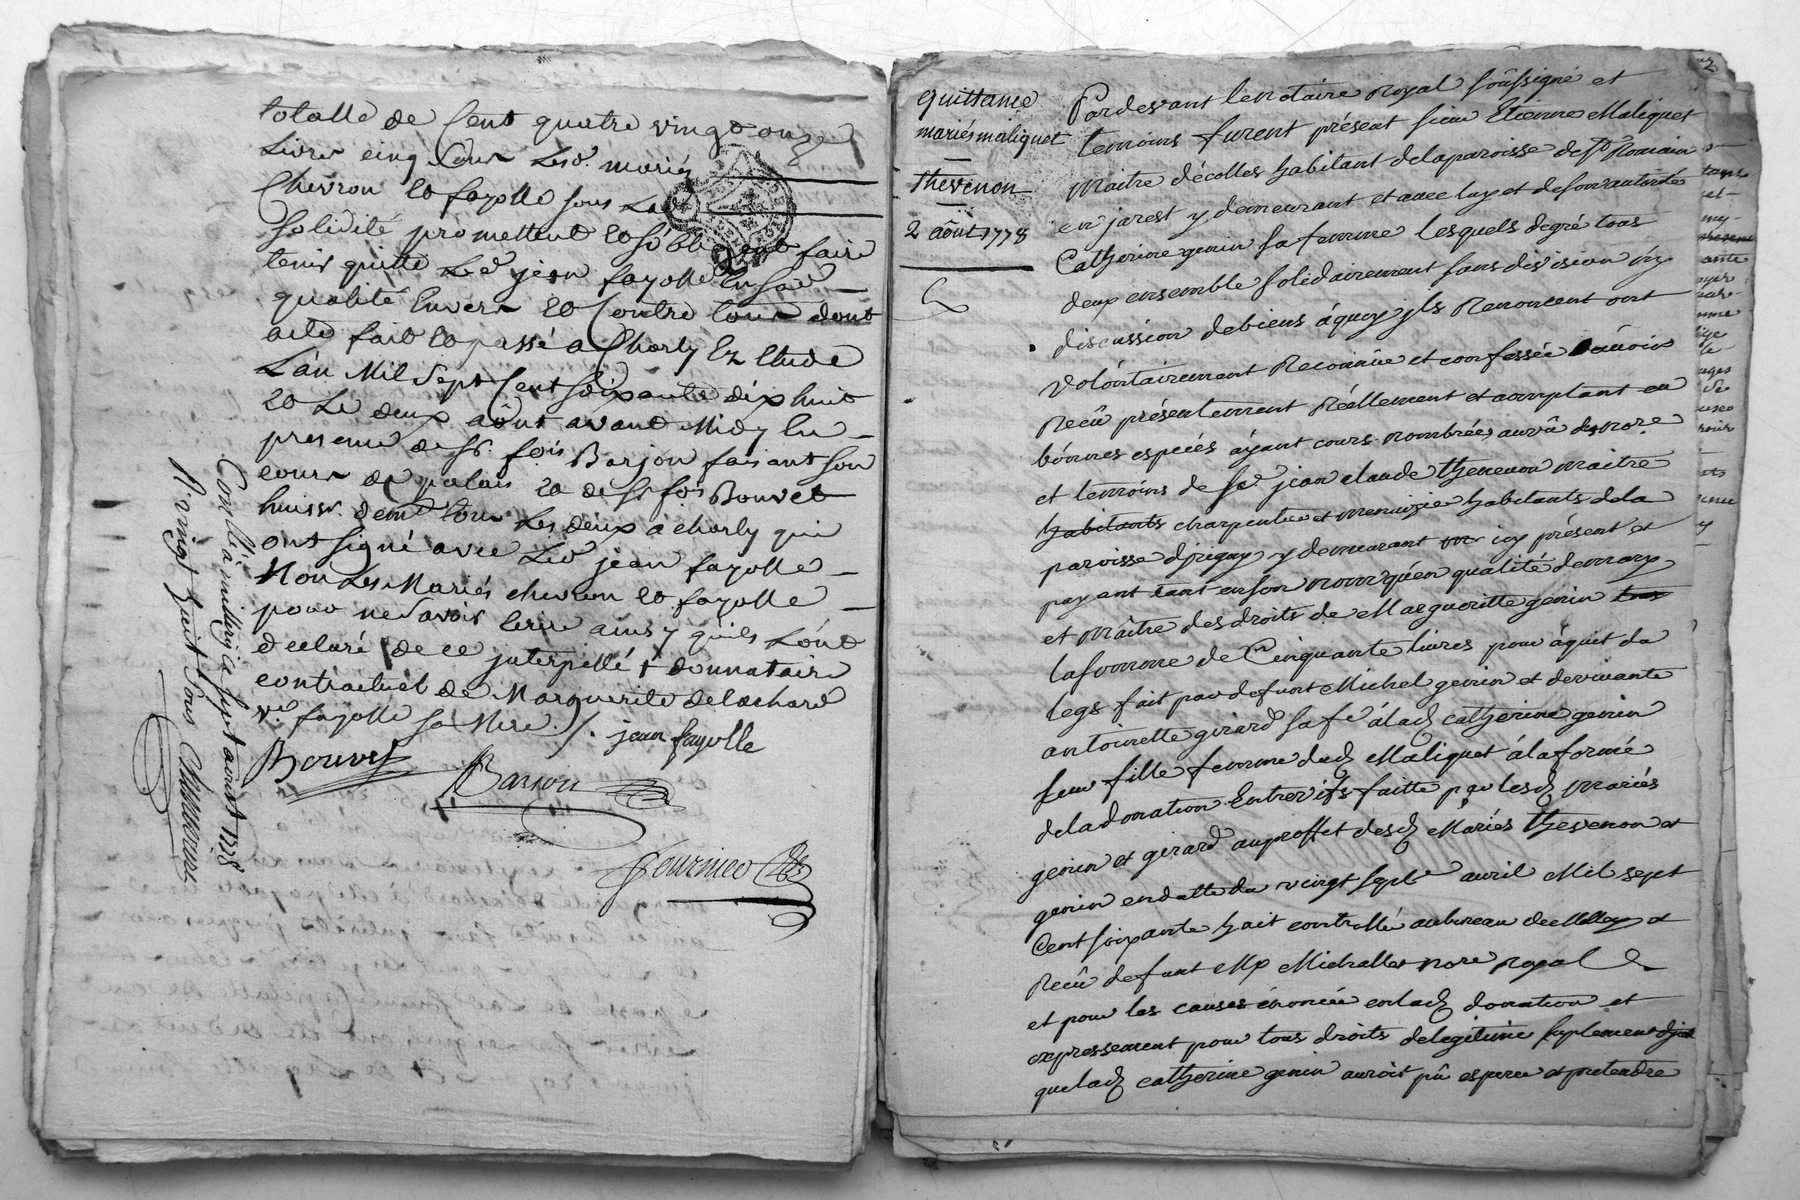 totalle de Cent quatre vingt onze
Livres cinq sous Lesd. mariés
Chevron et fayolle sous Lad
Solidité promettent et s'obligent faire
tenir quitte Led jean fayolle en sad
qualité Envers et Contre tous dont
acte fait et passé a Charly Ez Etude
L'an Mil Sept Cent Soixante dix huit
et Le deux aout avant Midy En
presence de Sr. fois Barjon faisant son
cours de palais et de Sr fois Bouvet
huissr. demt tous Les deux a charly qui
ont signé avec Led jean fayolle
Non Les Mariés chevron et fayolle
pour ne savoir Ecrire ainsy qu'ils L'ont
declaré de ce jnterpellé + donnataire
contractuel de Marguerite delachard
ve. fayolle sa Mere ./. jean fayolle
Bouvet
Barjon
fournier
Conllé a millery ce sept aoust 1778
R. vingt huit sous
quittance
mariés maliquet
thevenon
2 août 1778
Pardevant le notaire Royal soûssigné et
temoins furent présent sieur Etienne Maliquet
Maitre d'écolles habitant de la paroisse de st Romain
en jarest y demeurant et avec luy et de son autorité
Catherine genin sa femme lesquels de gré tous
deux ensemble solidairement sans division ny
discussion de biens à quoy jls Renoncent ont
volontairement Reconnûe et confessée avoir
Reçû présentement Réellement et comptant en
bonnes especes ayant cours nombrées au vû du nore
et temoins de sr. jean claude thevenon maitre
habitants charpentier et menuizie habitants de la
paroisse d'jrigny y demeurant icy présent et
payant tant en son nom qu'en qualité de mary
et Maître des droits de Marguerite genin
la somme de Cinquante livres pour aquit du
legs fait par defunt Michel genin et de vivante
antoinette girard sa fe à lad catherine genin
leur fille femme dud Maliquet à la forme
de la donation Entre vifs faitte par lesd mariés
genin et girard au proffet desd Mariés thevenon et
genin en datte du vingt sept avril Mil sept
Cent soixante huit controllé au bureau de et
Reçu defunt Me Michallet nore royal
et pour les causes énoncée en lad donation et
expressement pour tous droits de legitime suplement d'jcelle
que lad catherine genin auroit pû esperer et pretendre